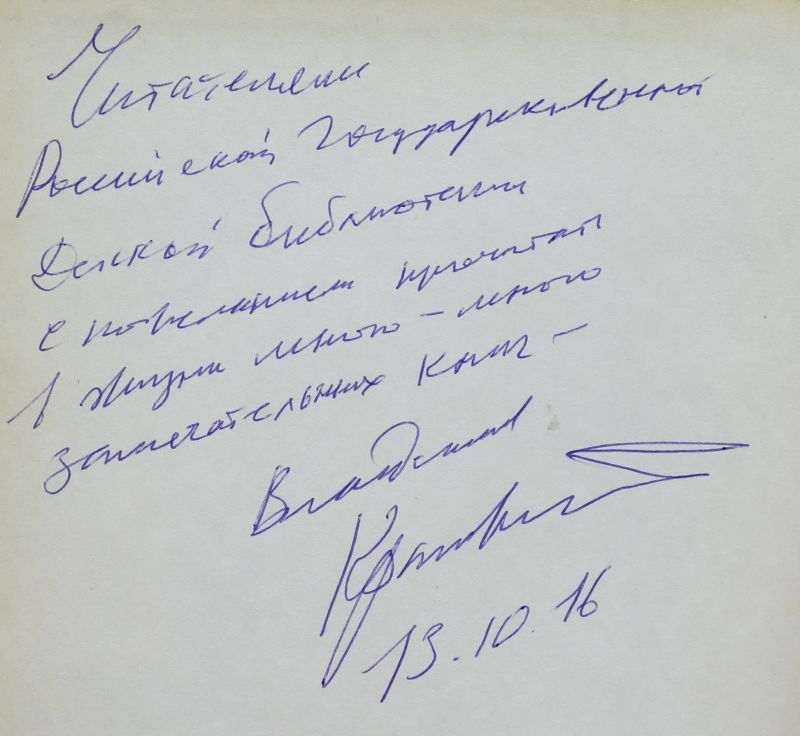 Читателям
Российской Государственной
Детской библиотеки
с пожеланием прочитать
в жизни много-много
замечательных книг –
Владислав
13.10.16